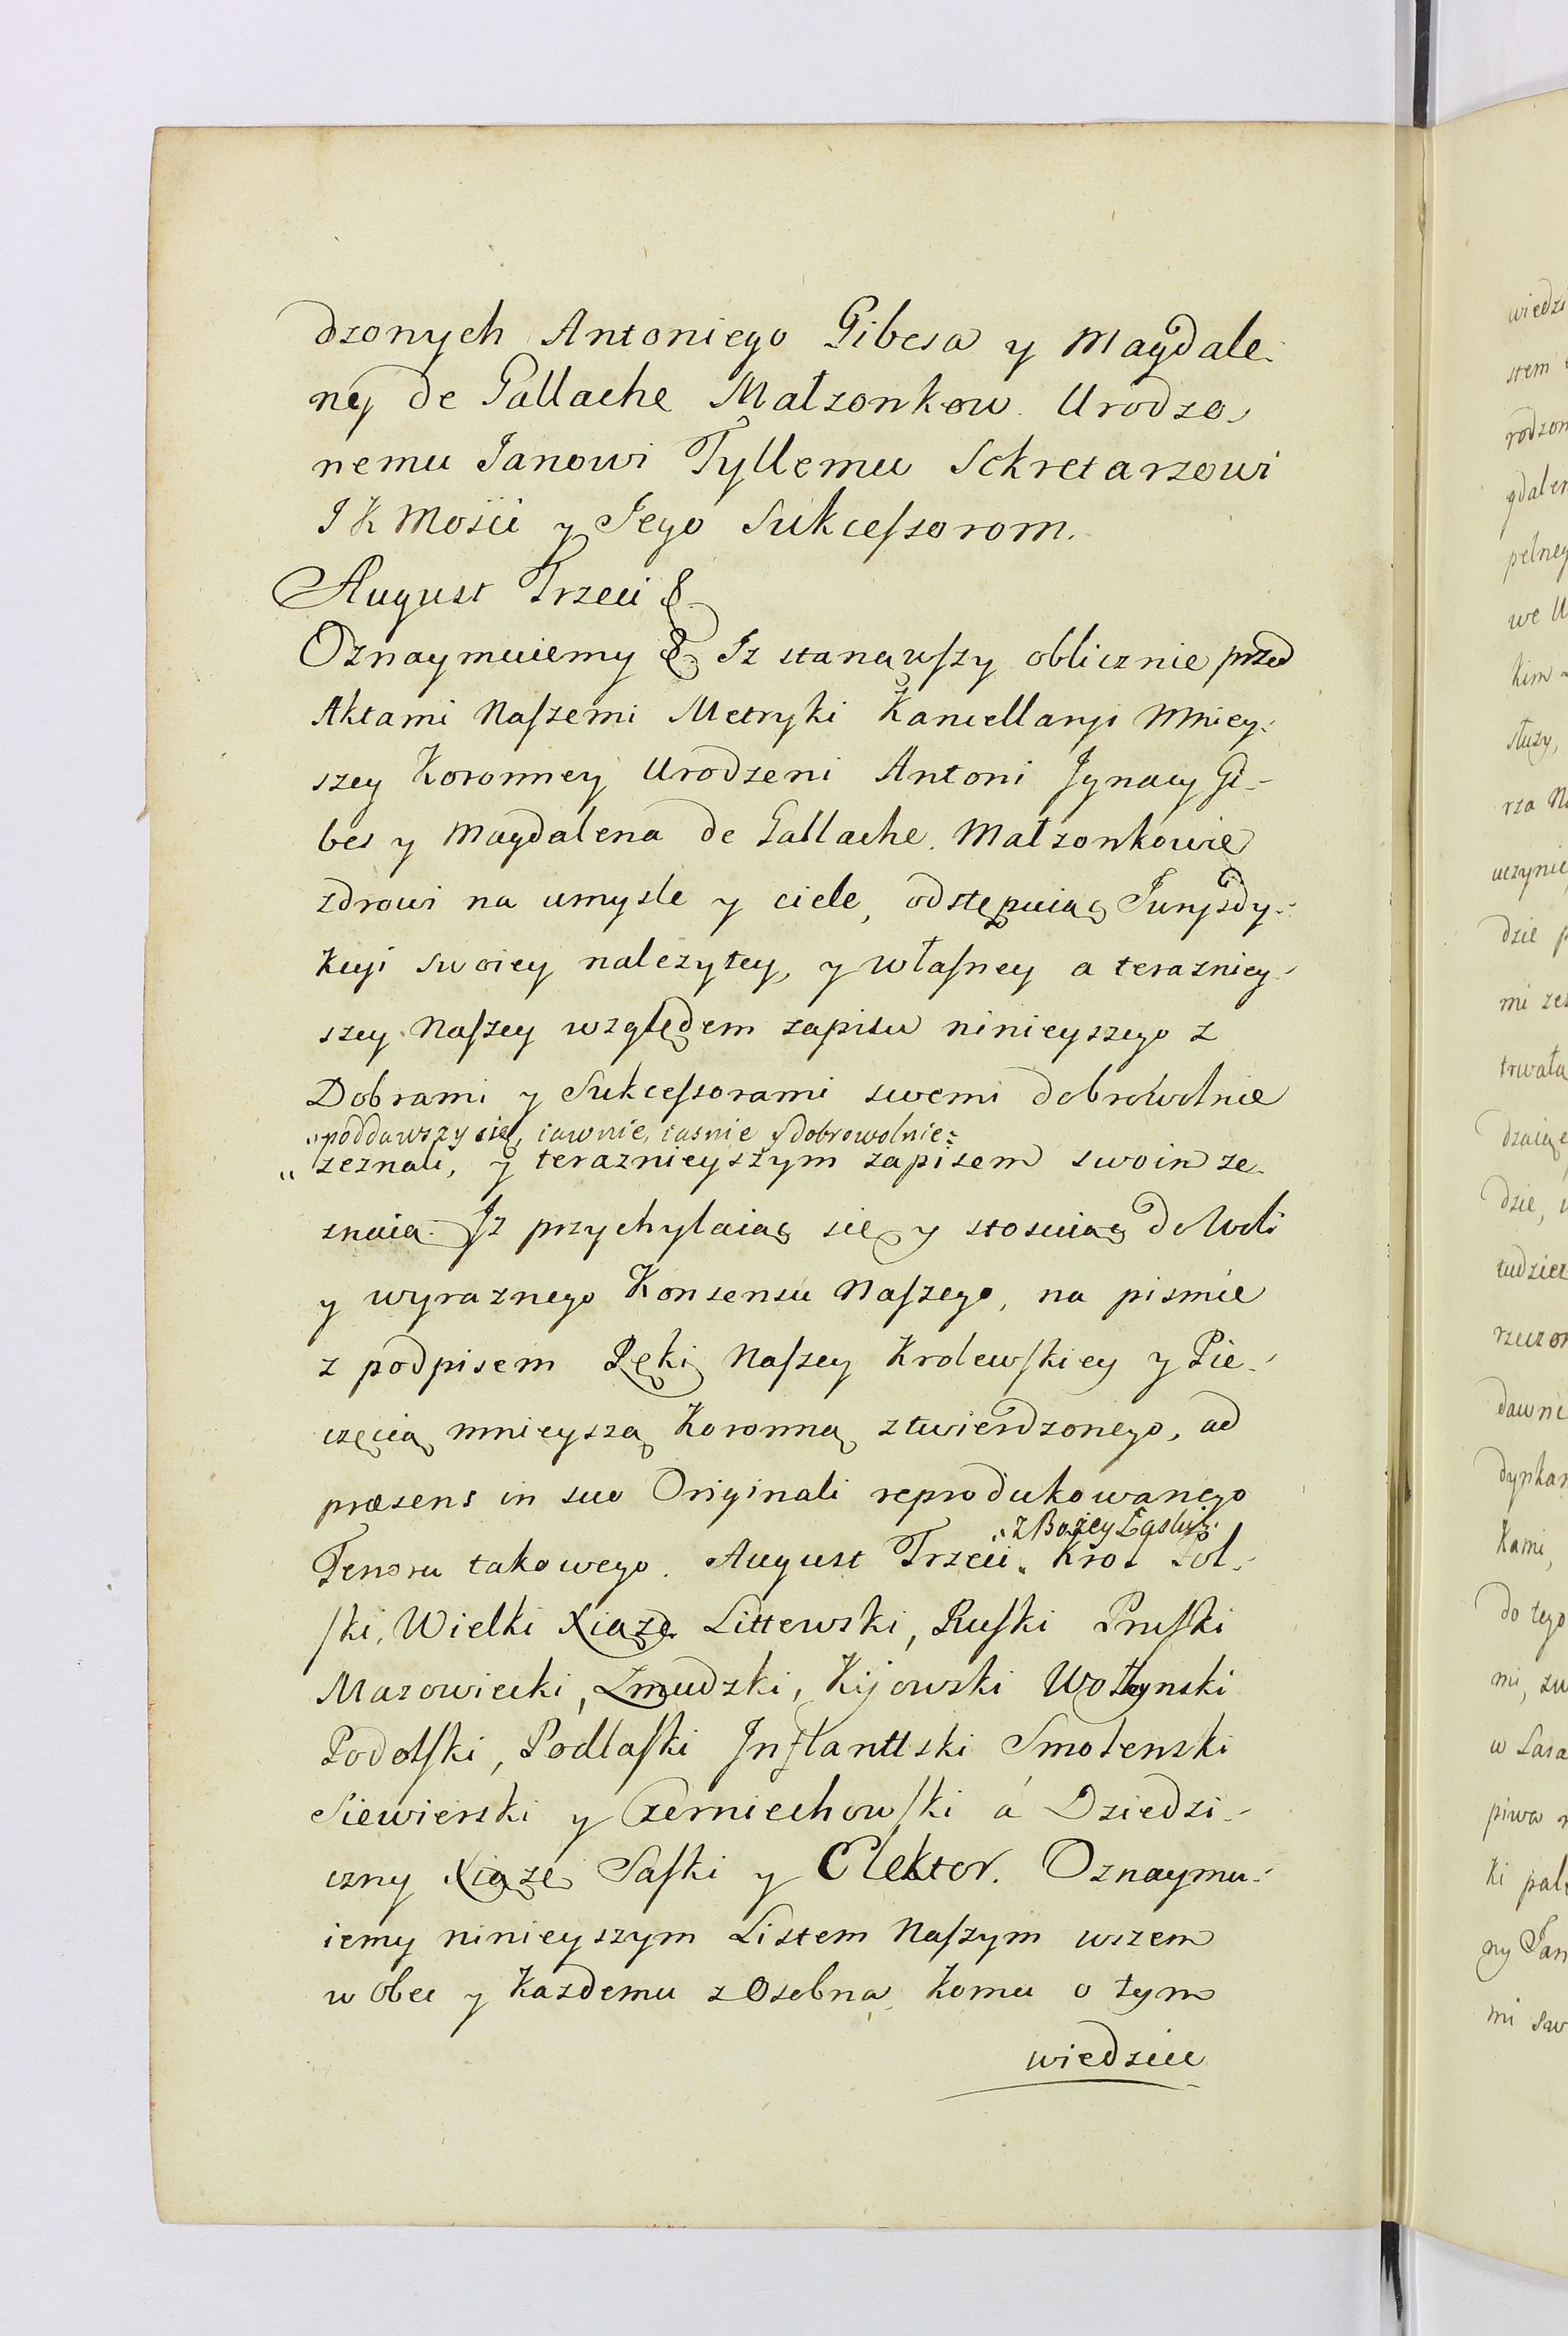 dzonych Antoniego Gibesa y Magdale-
ny de Gallache Małzonkow. Urodzo-
nemu Janowi Tyllemu Sekretarzowi
J K Mosci y Jego Sukcessorom.
August Trzeci &
Oznaymuiemy &. Iz stanąwszy oblicznie przed
Aktami Naszemi Metryki Kancellaryi Mniey-
szey Koronney Urodzeni Antoni Jgnacy Gi-
bes y Magdalena de Gallache. Małzonkowie
zdrowi na umysle y ciele, odstępuiąc Juryzdy-
kcyi swoiey nalezytey, y własney a terazniey-
szey Naszey względem zapisu ninieyszego z
Dobrami y Sukcessorami swemi dobrowolnie
"poddawszy się, iawnie, iasnie y dobrowolnie
"zeznali, y teraznieyszym zapisem swoim ze-
znaią. Iz przychylaiąc się y stosuiąc do Woli
y wyraznego Konsensu Naszego, na pismie
z podpisem Ręki Naszey Krolewskiey y Pie-
częcią mnieyszą Koronną ztwierdzonego, ad
præsens in suo Originali reprodukowanego
"z Bożey Łaski
Tenoru takowego. August Trzeci " Krol Pol-
ski, Wielki Xiąze Littewski, Ruski Pruski
Mazowiecki, Zmudzki, Kijowski Wołynski
Podolski, Podlaski Jnflanttski Smolenski
Siewierski y Czerniechowski á Dziedzi-
czny Xiąze Saski y Elektor. Oznaymu-
iemy ninieyszym Listem Naszym wszem
w obec y Kazdemu z Osobna, komu o tym
wiedziec
wiedzi
stem
rodzon
gdalen
pełney
we U
kim
służy,
rza Na
uczynie
dzie p
mi zes
trwała
dzaiąc
dzie,
tudziez
rzeczon
dawne
dynkam
kami,
do tego
mi,
w Lasa
piwa
ki pal
ny Jan
mi